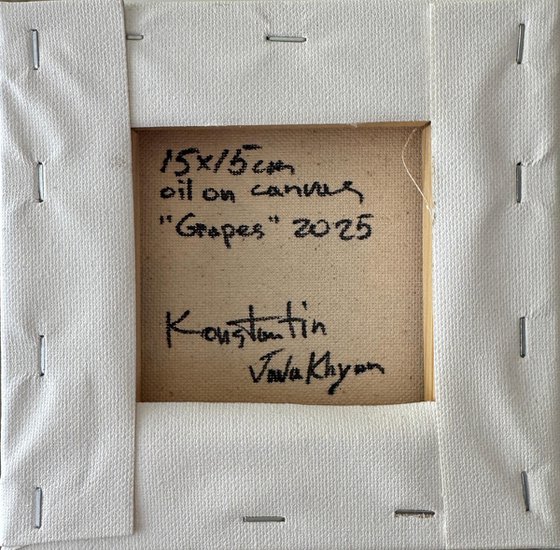 15x15cm
oil on canvas
"Grapes" 2025
Konstantin
JavaKhyan